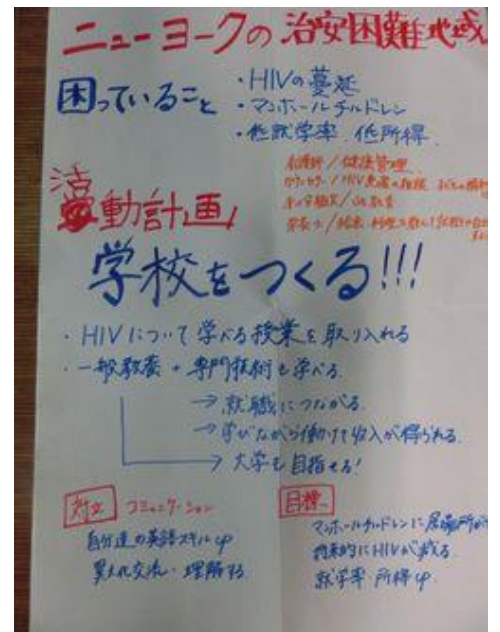 ニューヨークの治安困難地域
困っていること
・HIVの蔓延
・マンホールチルドレン
・低就学率、低所得
看護師/健康管理
活動計画
学校をつくる!!!
・HIVについて学べる授業を取り入れる
・一般教養+専門技術も学べる
→就職につながる
→学びながら働けて収入が得られる
→大学も目指せる!
対立 コミュニケーション
自分達の英語スキルup
異文化交流・理解する
目標
マンホールチルドレンに居場所が
将来的にHIVが減る
就学率・所得up